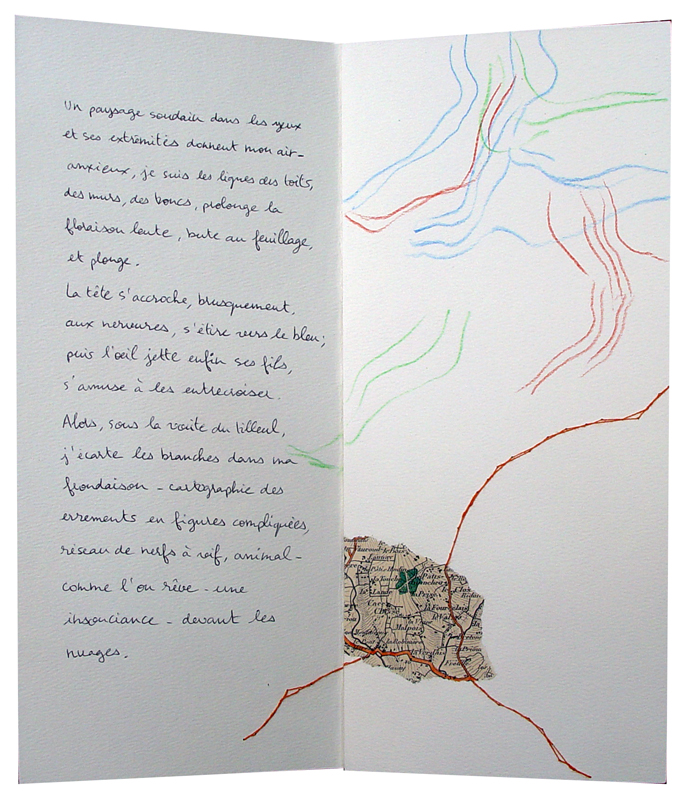 Un paysage soudain dans les yeux
et ses extrémités donnent mon air –
anxieux, je suis les lignes des toits,
des murs, des troncs, prolonge la
floraison lente, bute au feuillage,
et plonge.
La tête s'accroche, brusquement,
aux nervures, s'étire vers le bleu ;
puis l'œil jette enfin ses fils,
s'amuse à les entrecroiser.
Alors, sous la voûte du tilleul,
j'écarte les branches dans ma
frondaison – cartographie des
errements en figures compliquées,
réseau de nerfs à vif, animal –
comme l'on rêve – une
insouciance – devant les
nuages.